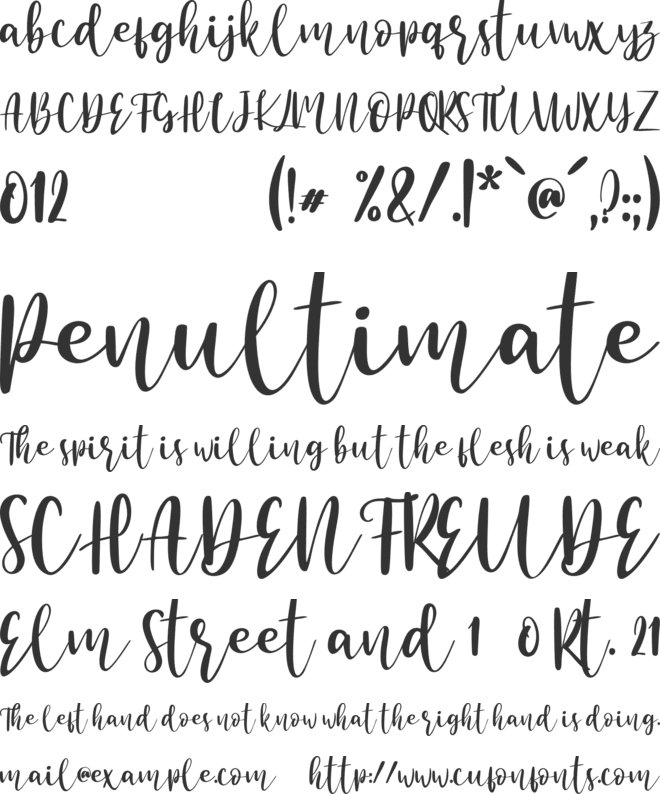 abcdefghijklmnopqrstuvwxyz
ABCDEFGHIJKLMNOPQRSTUVWXYZ
012 (!# %&/.|*`@´,?:;)
Penultimate
The spirit is willing but the flesh is weak
SCHADENFREUDE
Elm Street and 1 0 Rt. 21
The left hand does not know what the right hand is doing.
mail@example.com http://www.cufonfonts.com